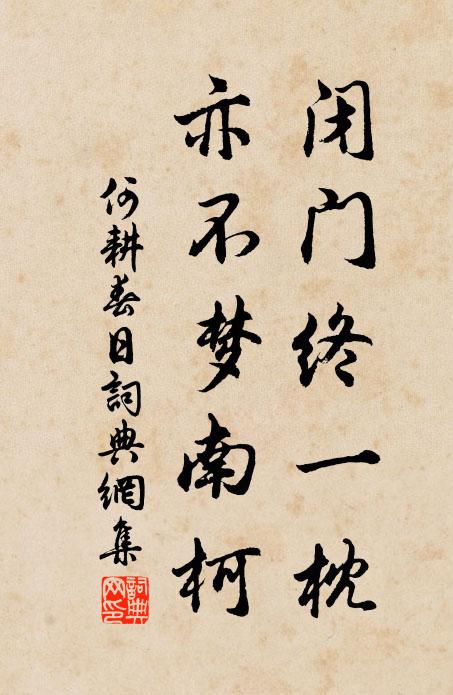 闭门终一枕
亦不梦南柯
何耕春日詞典網集
詞典网印